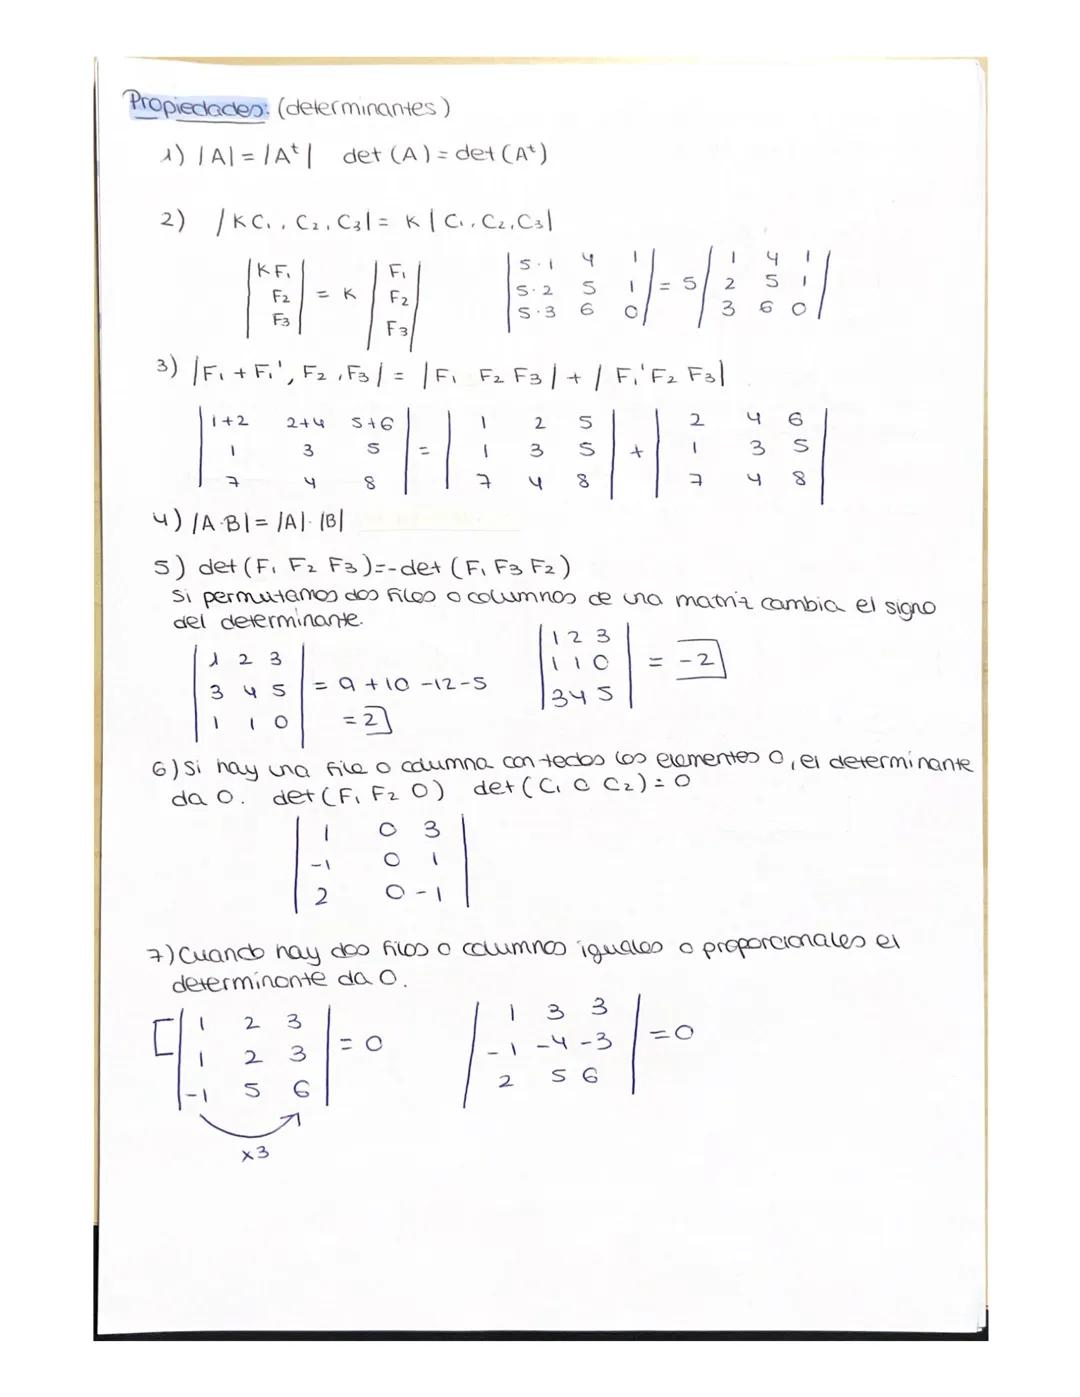 Propiedades: (determinantes)
1) |A| = |Aᵗ| det (A) = det (Aᵗ)
2) |KC₁, C₂, C₃| = K |C₁, C₂, C₃|
|KF₁| |F₁| |5·1 4 1| |1 4 1|
|F₂| = K |F₂| |5·2 5 1| = 5 |2 5 1|
|F₃| |F₃| |5·3 6 0| |3 6 0|
3) |F₁ + F₁', F₂, F₃| = |F₁ F₂ F₃| + |F₁' F₂ F₃|
|1+2 2+4 5+6| |1 2 5| |2 4 6|
|1 3 5| = |1 3 5| + |1 3 5|
|7 4 8| |7 4 8| |7 4 8|
4) |A·B| = |A|·|B|
5) det (F₁ F₂ F₃) = -det (F₁ F₃ F₂)
Si permutamos dos filas o columnas de una matriz cambia el signo
del determinante.
|1 2 3| |1 2 3|
|3 4 5| = 9 + 10 - 12 - 5 |1 1 0| = -2
|1 1 0| = 2 |3 4 5|
6) Si hay una fila o columna con todos los elementos 0, el determinante
da 0. det (F₁ F₂ 0) det (C₁ 0 C₂) = 0
|1 0 3|
|-1 0 1|
|2 0 -1|
7) Cuando hay dos filas o columnas iguales o proporcionales el
determinante da 0.
|1 2 3| |1 3 3|
|1 2 3| = 0 |-1 -4 -3| = 0
|-1 5 6| |2 5 6|
x3